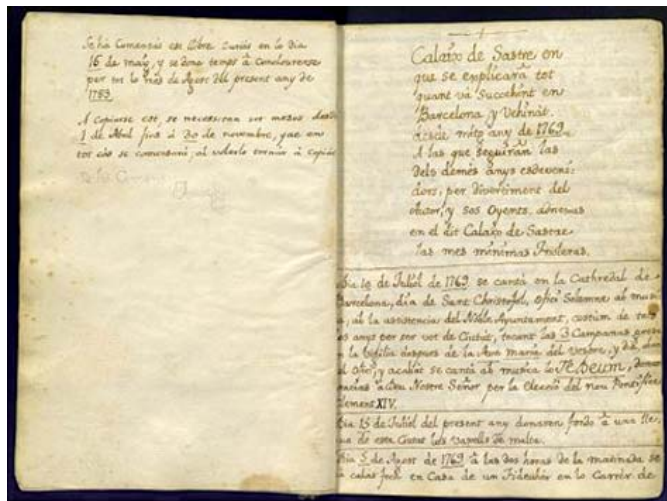 Se ha Comensat est llibre Curiós en lo Dia
16 de maig, y se dona temps à Conclourerse
per tot lo mes de Agost del present any de
1783.
A Copiarse est, se necessitan set mesos des de
1 de Abril fins à 30 de novembre, y ae en
tot cas se comensará, al volerlo tornar à copiar
Calaix de Sastre en
que se explicarà tot
quant và succehint en
Barcelona y Vehinàt
desde mitg any de 1769.
A las que seguiràn las
Dels demés anys esdeveni-
dors, per divertiment del
Autor, y sos Oyents, adnexas
en el dit Calaix de Sastre
las mes minimas frioleras.
Dia 10 de Juliòl de 1769 se cantà en la Cathredal de
Barcelona, dia de Sant Christofol, ofici Solemne ab musi-
ca, ab la assistencia del Noble Ajuntament, costum de tots
os anys per ser vot de Ciutat, tocant las 3 Campanas grossas
en la Vigilia despues de la Ave maria del vespre, y dit dia
el Ofici, y acabat se cantà ab musica lo Te Deum, donant
gracias à Deu Nostre Señor per la elecció del nou Pontifice
Clement XIV.
Dia 15 de Juliòl del present any donaren fondo à una lle-
ua de esta Ciutat los vaxells de malta.
Dia 5 de Agost de 1769 à las dos horas de la matinada se
calar foch en Casa de un Fideuhèr en lo Carrèr de